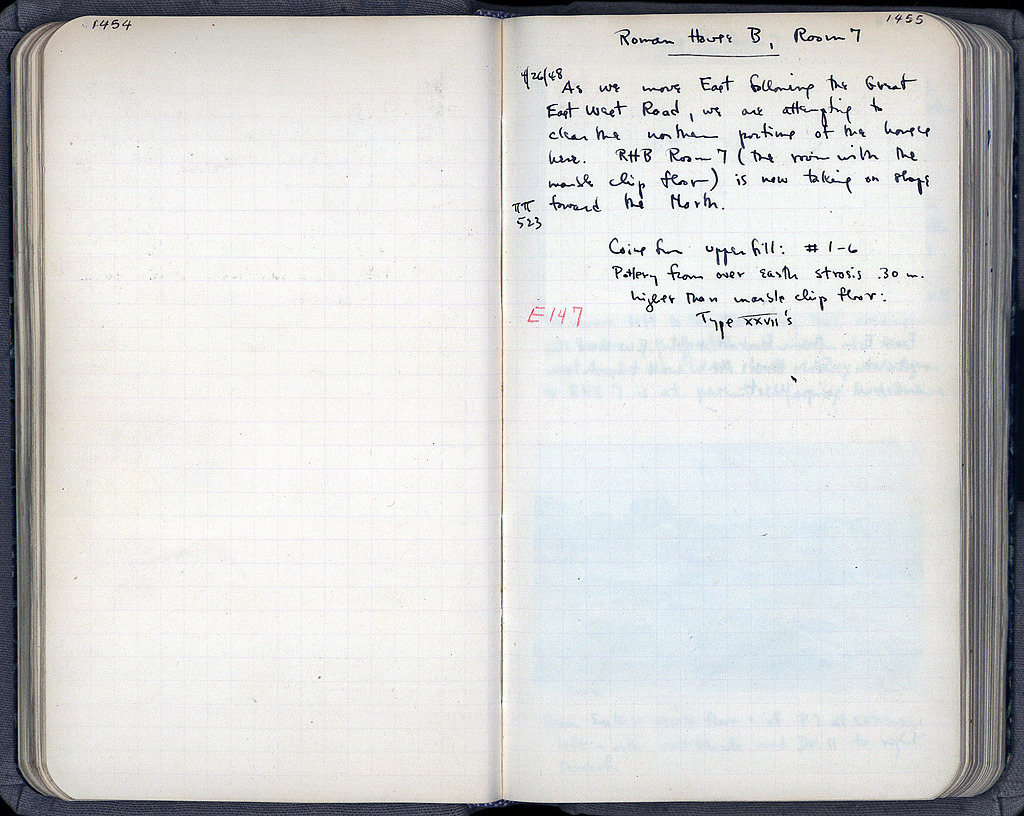 1454
1455
Roman House B, Room 7
4/26/48
As we move East following the Great
East West Road, we are attempting to
clear the northern portions of the houses
here. RHB Room 7 (the room with the
marble chip floor) is now taking on shape
toward the North.
ΠΠ
523
Coins from upper fill: #1-6
Pottery from over earth strosis .30 m.
higher than marble chip floor:
E147
Type XXVII's